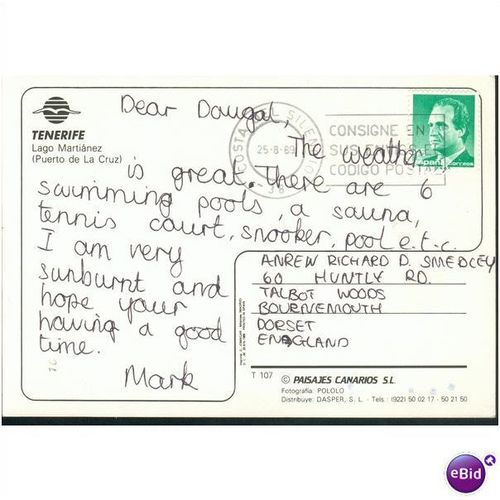 TENERIFE
Lago Martiánez
(Puerto de La Cruz)
Dear Dougal,
The weather
is great. There are 6
swimming pools, a sauna,
tennis court, snooker, pool e.t.c.
I am very
sunburnt and
hope your
having a good
time.
Mark
25-8-89
CONSIGNE EN
CODIGO POSTAL
correos
ANREW RICHARD D. SMEDLEY
60 HUNTLY RD.
TALBOT WOODS
BOURNEMOUTH
DORSET
ENGLAND
T 107
© PAISAJES CANARIOS S.L.
Fotografía: POLOLO
Distribuye: DASPER, S. L. - Tels.: (922) 50 02 17 - 50 21 50
eBid